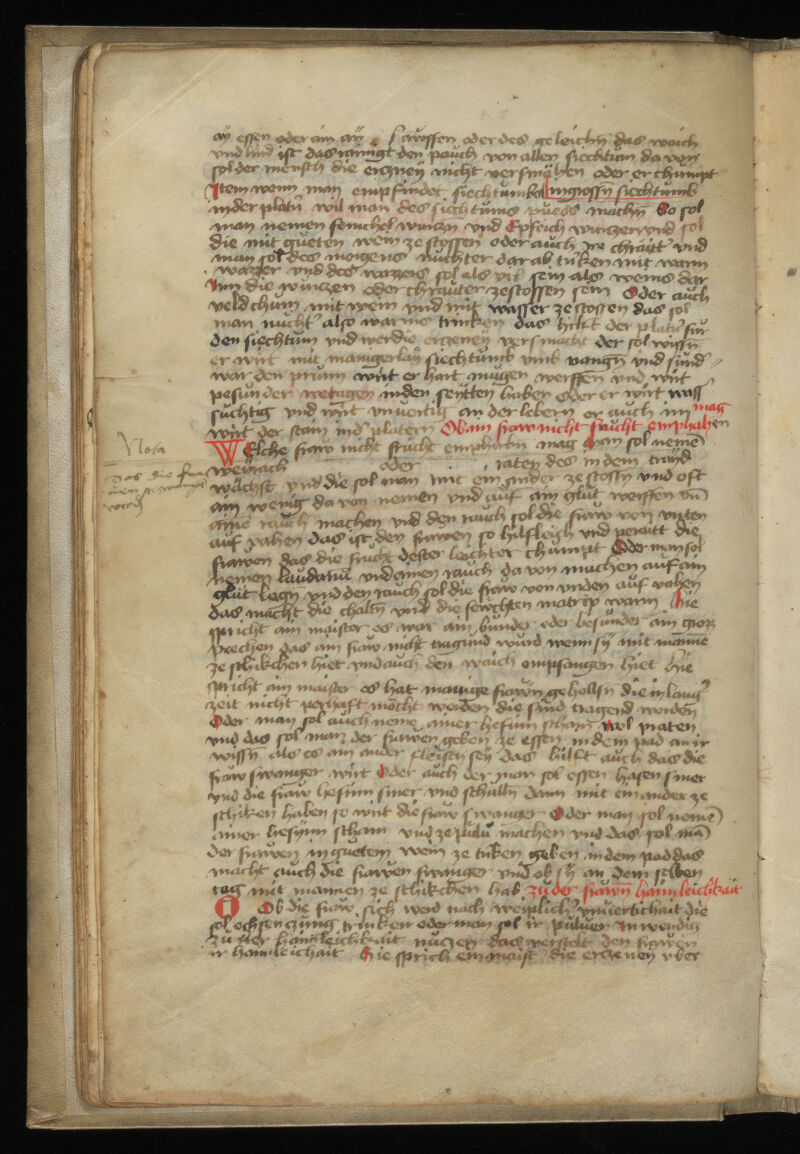 ay essen oder ain ay sawffen oder des geleichñ das waich
vnd lind ist das rainigt den pauch von allen siechtum da von
sol der mensch die erczney nicht versmahen oder er chumpt
Item wenn man empfindet siechtumbs in grossñ siechtumb
in der platñ wil man des siechtums puess machñ So sol
man nemen fenichel wurczn vnd Epfich wurczen vnd sol
die mit gueten wein ze stossen oder auch ir chrautt vnd
man sol des morgens nuchter dar ab trinken mit warm
wazzer vnd des wazzers sol als vil sein als weins dar
Inn die wurczen oder chrauter zestossen sein Oder auch
veld chum mit wein vnd mit wasser ze stossen das sol
man nucht also warms trinken das hilfft der platñ fur
den siechtum vnd wer die erczeney versmacht der sol wissñ
er wirt mit manigerlay siechtumb vmb vangñ vnd sund
war den prunn wirt er hart mugen werffen vnd wirt
pesunder wetagen in den seytten haben oder er wirt wass
suchtig vnd wirt vnuertig an der lebern er auch im mag
wirt der stain in d platern Ob ain fraw nicht frucht emphahen
Welche fraw nicht frucht emphahñ mag man sol nemẽ
weyrach oder raten des in dem trayd
wachst vnd die sol man mit ein ander ze stossñ vnd oft
ain wenig da von nemen vnd auf ain glut werffen vñ
aine rauch machen vnd den rauch sol die fraw von vnten
auf vahen das ist den frawen so hilfleich vnd peratt die
frawen das die frucht dester leichter chumpt Oder man sol
nemen laudanũ vnd ainen rauch da von machen auf ain
glut legñ vnd den rauch sol die fraw von vnden auf vahen
das macht die chaltñ vnd die fewchten matrip warm Hie
spricht ain maister es war ain bunder oder besunder ain gross
zaichen das ain fraw nicht tragund wurd wenn sy mit manne
ze schikchen hiet vnd auch den rauch empfangen hiet hie
spricht ain maister es hat manige frawñ geholffñ die in lang
zeit nicht perhaft mocht werden die sind tragend worden
Oder man sol auch neme ainer hesinn scham wol praten
vnd das sol man der frawen geben ze essen in dem pad an ir
wissñ als es ain ander fleisch sey das hilft auch das die
fraw swanger wirt Oder auch der man sol essen hasen smer
vnd die fraw hesinn smer vnd schulln dann mit ein ander ze
schiken haben so wirt die fraw swanger Oder man sol nemẽ
ainer hesynn scham vnd ze puluer machen vnd das sol mã
der frawen in guetem wein ze trinken geben in dem pad das
macht auch die frawen swanger vnd ob sy an dem selben
tag mit mannen ze schikchen hab zu der frawñ haimleichkait
Ob die fraw sich werd nach weyplicher vnuertichait die
sol ochsen czung trinken oder man sol ir puluer inwendig
zu irer haimleichkait nuczen das verstelt den frawen
ir haimleichait Hie sprich ein maist die erczeney vber
Nota
Das die fra
wen swanger
werdñ